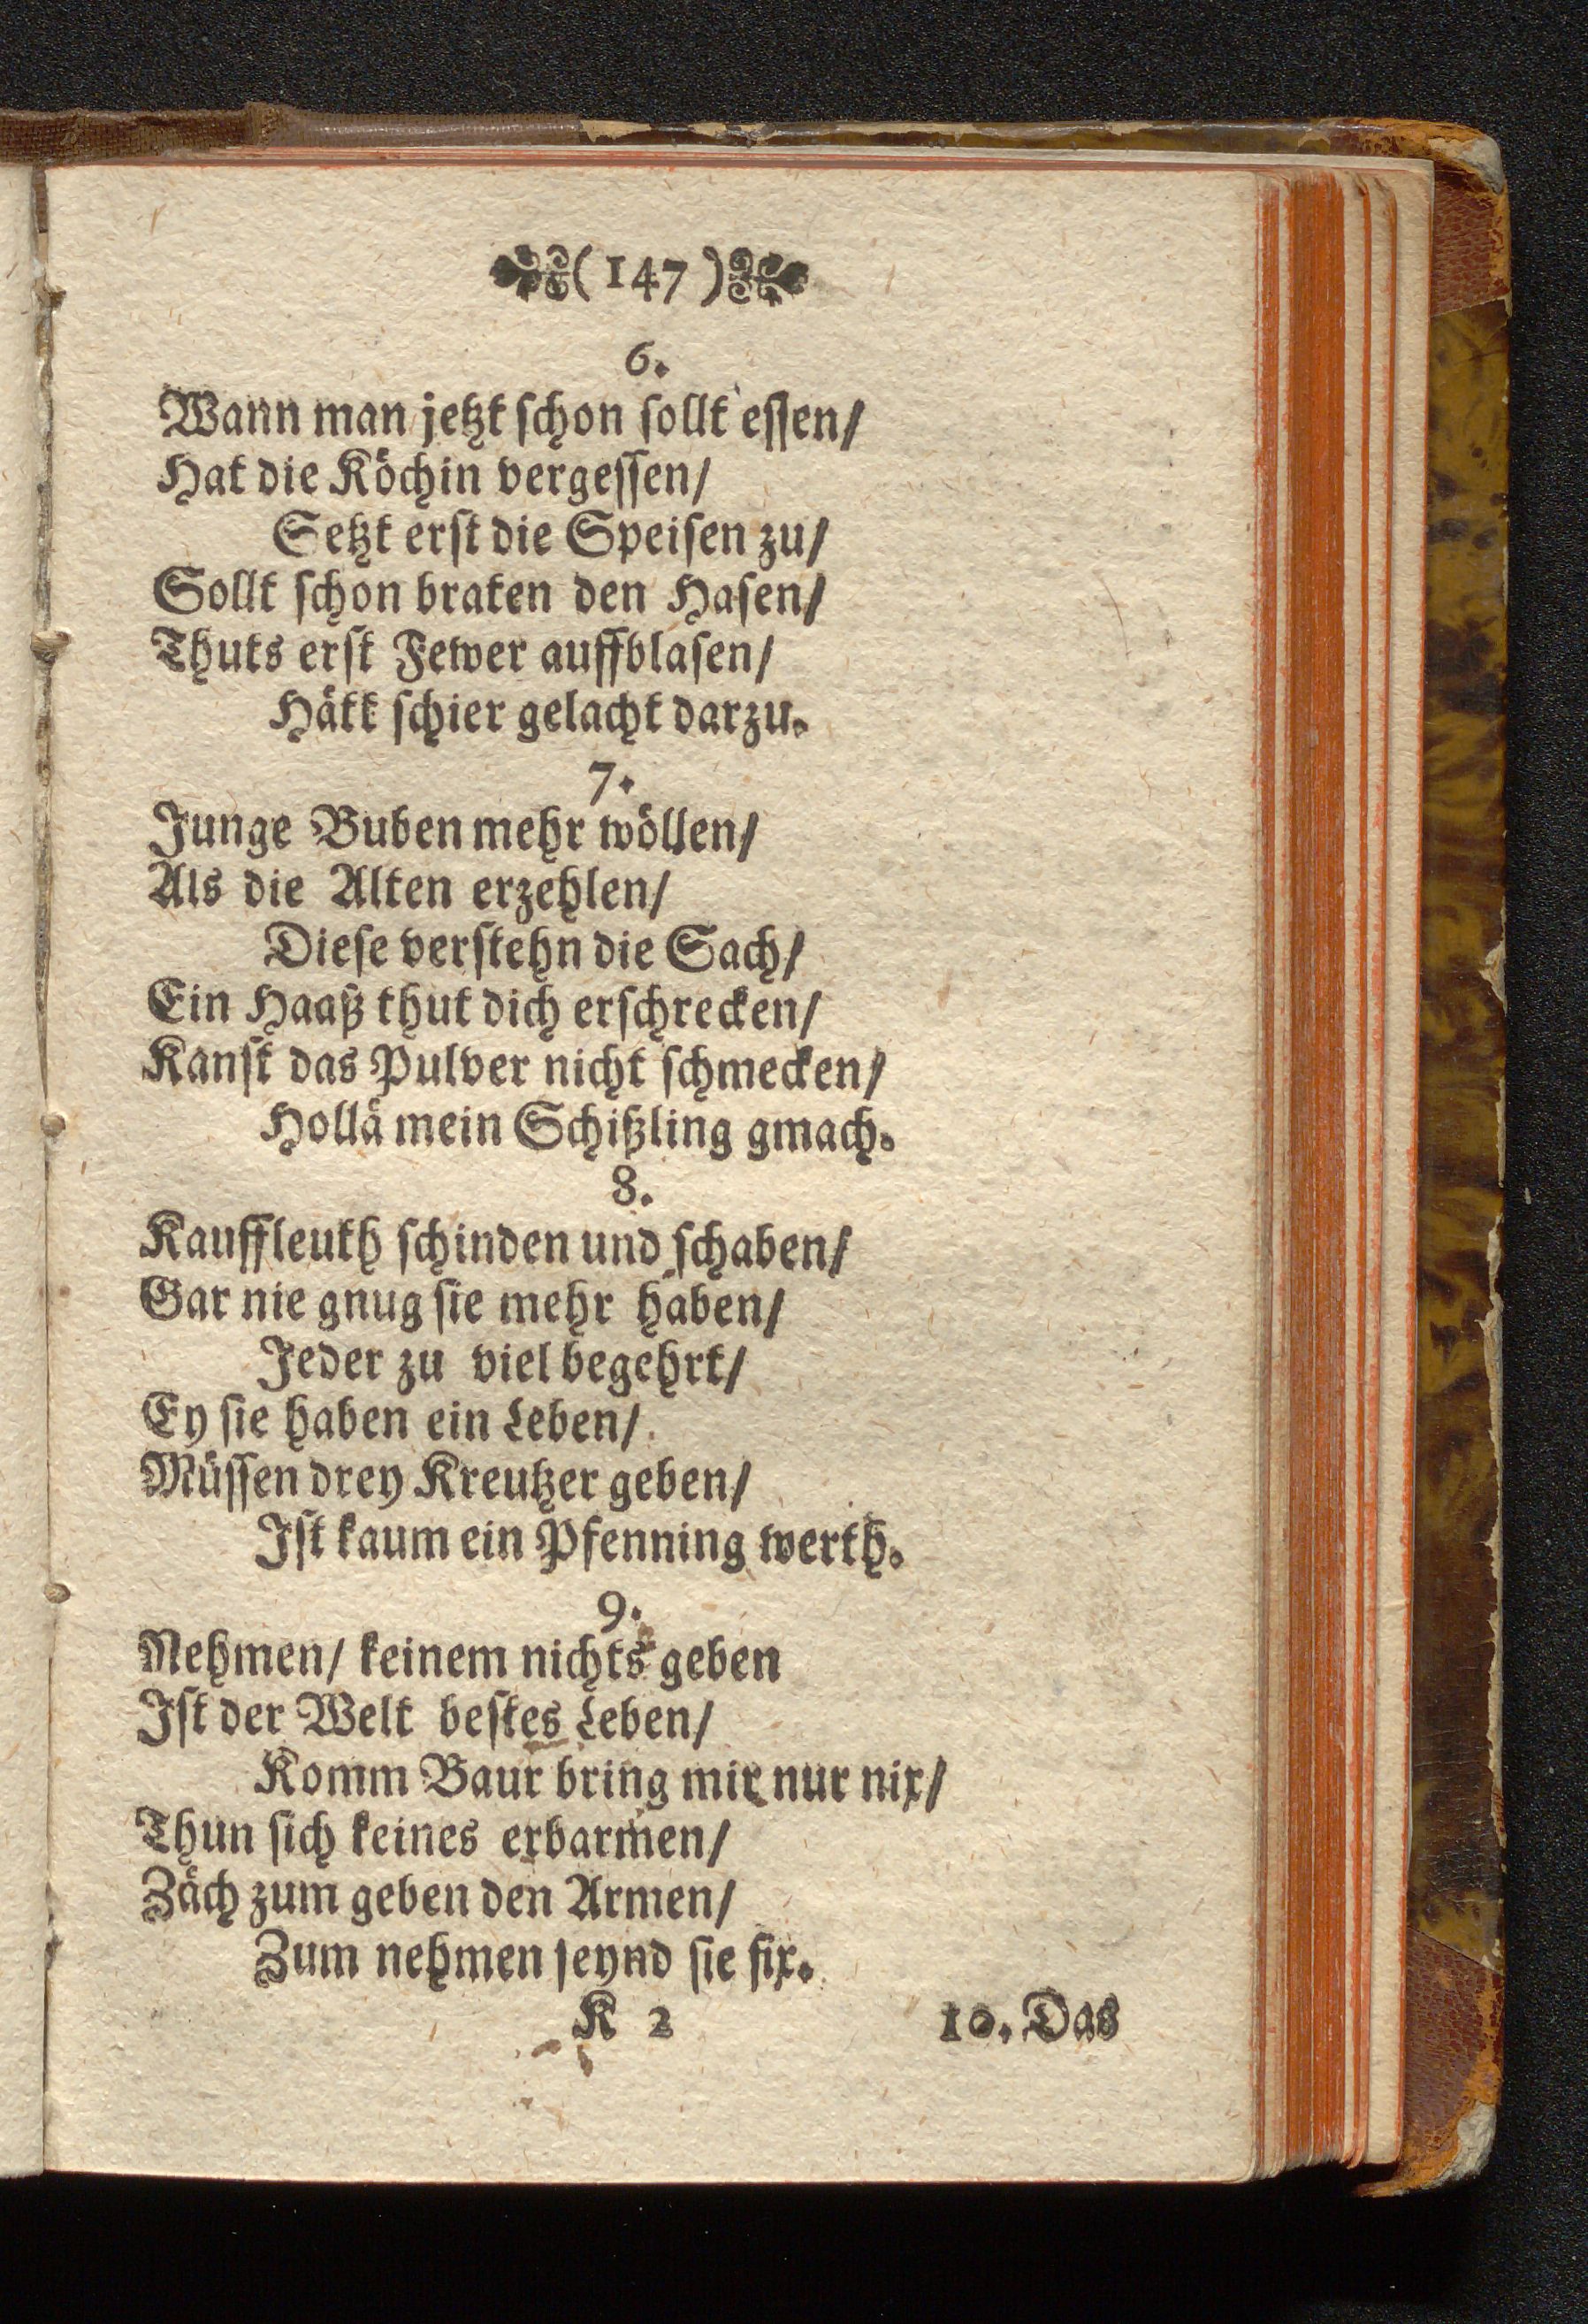 (147)
6.
Wann man jetzt schon sollt essen/
Hat die Köchin vergessen/
Setzt erst die Speisen zu/
Sollt schon braten den Hasen/
Thuts erst Fewer auffblasen/
Hätt schier gelacht darzu.
7.
Junge Buben mehr wöllen/
Als die Alten erzehlen/
Diese verstehn die Sach/
Ein Haaß thut dich erschrecken/
Kanst das Pulver nicht schmecken/
Hollä mein Schißling gmach.
8.
Kauffleuth schinden und schaben/
Gar nie gnug sie mehr haben/
Jeder zu viel begehrt/
Ey sie haben ein Leben/
Müssen drey Kreutzer geben/
Ist kaum ein Pfenning werth.
9.
Nehmen/ keinem nichts geben
Ist der Welt bestes Leben/
Komm Baur bring mir nur nix/
Thun sich keines erbarmen/
Zäch zum geben den Armen/
Zum nehmen seynd sie fix.
K 2 10. Das